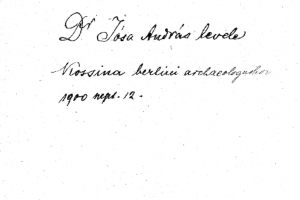 Dr Jósa András levele
Kossina berlini archaeologushoz
1900 sept. 12.-